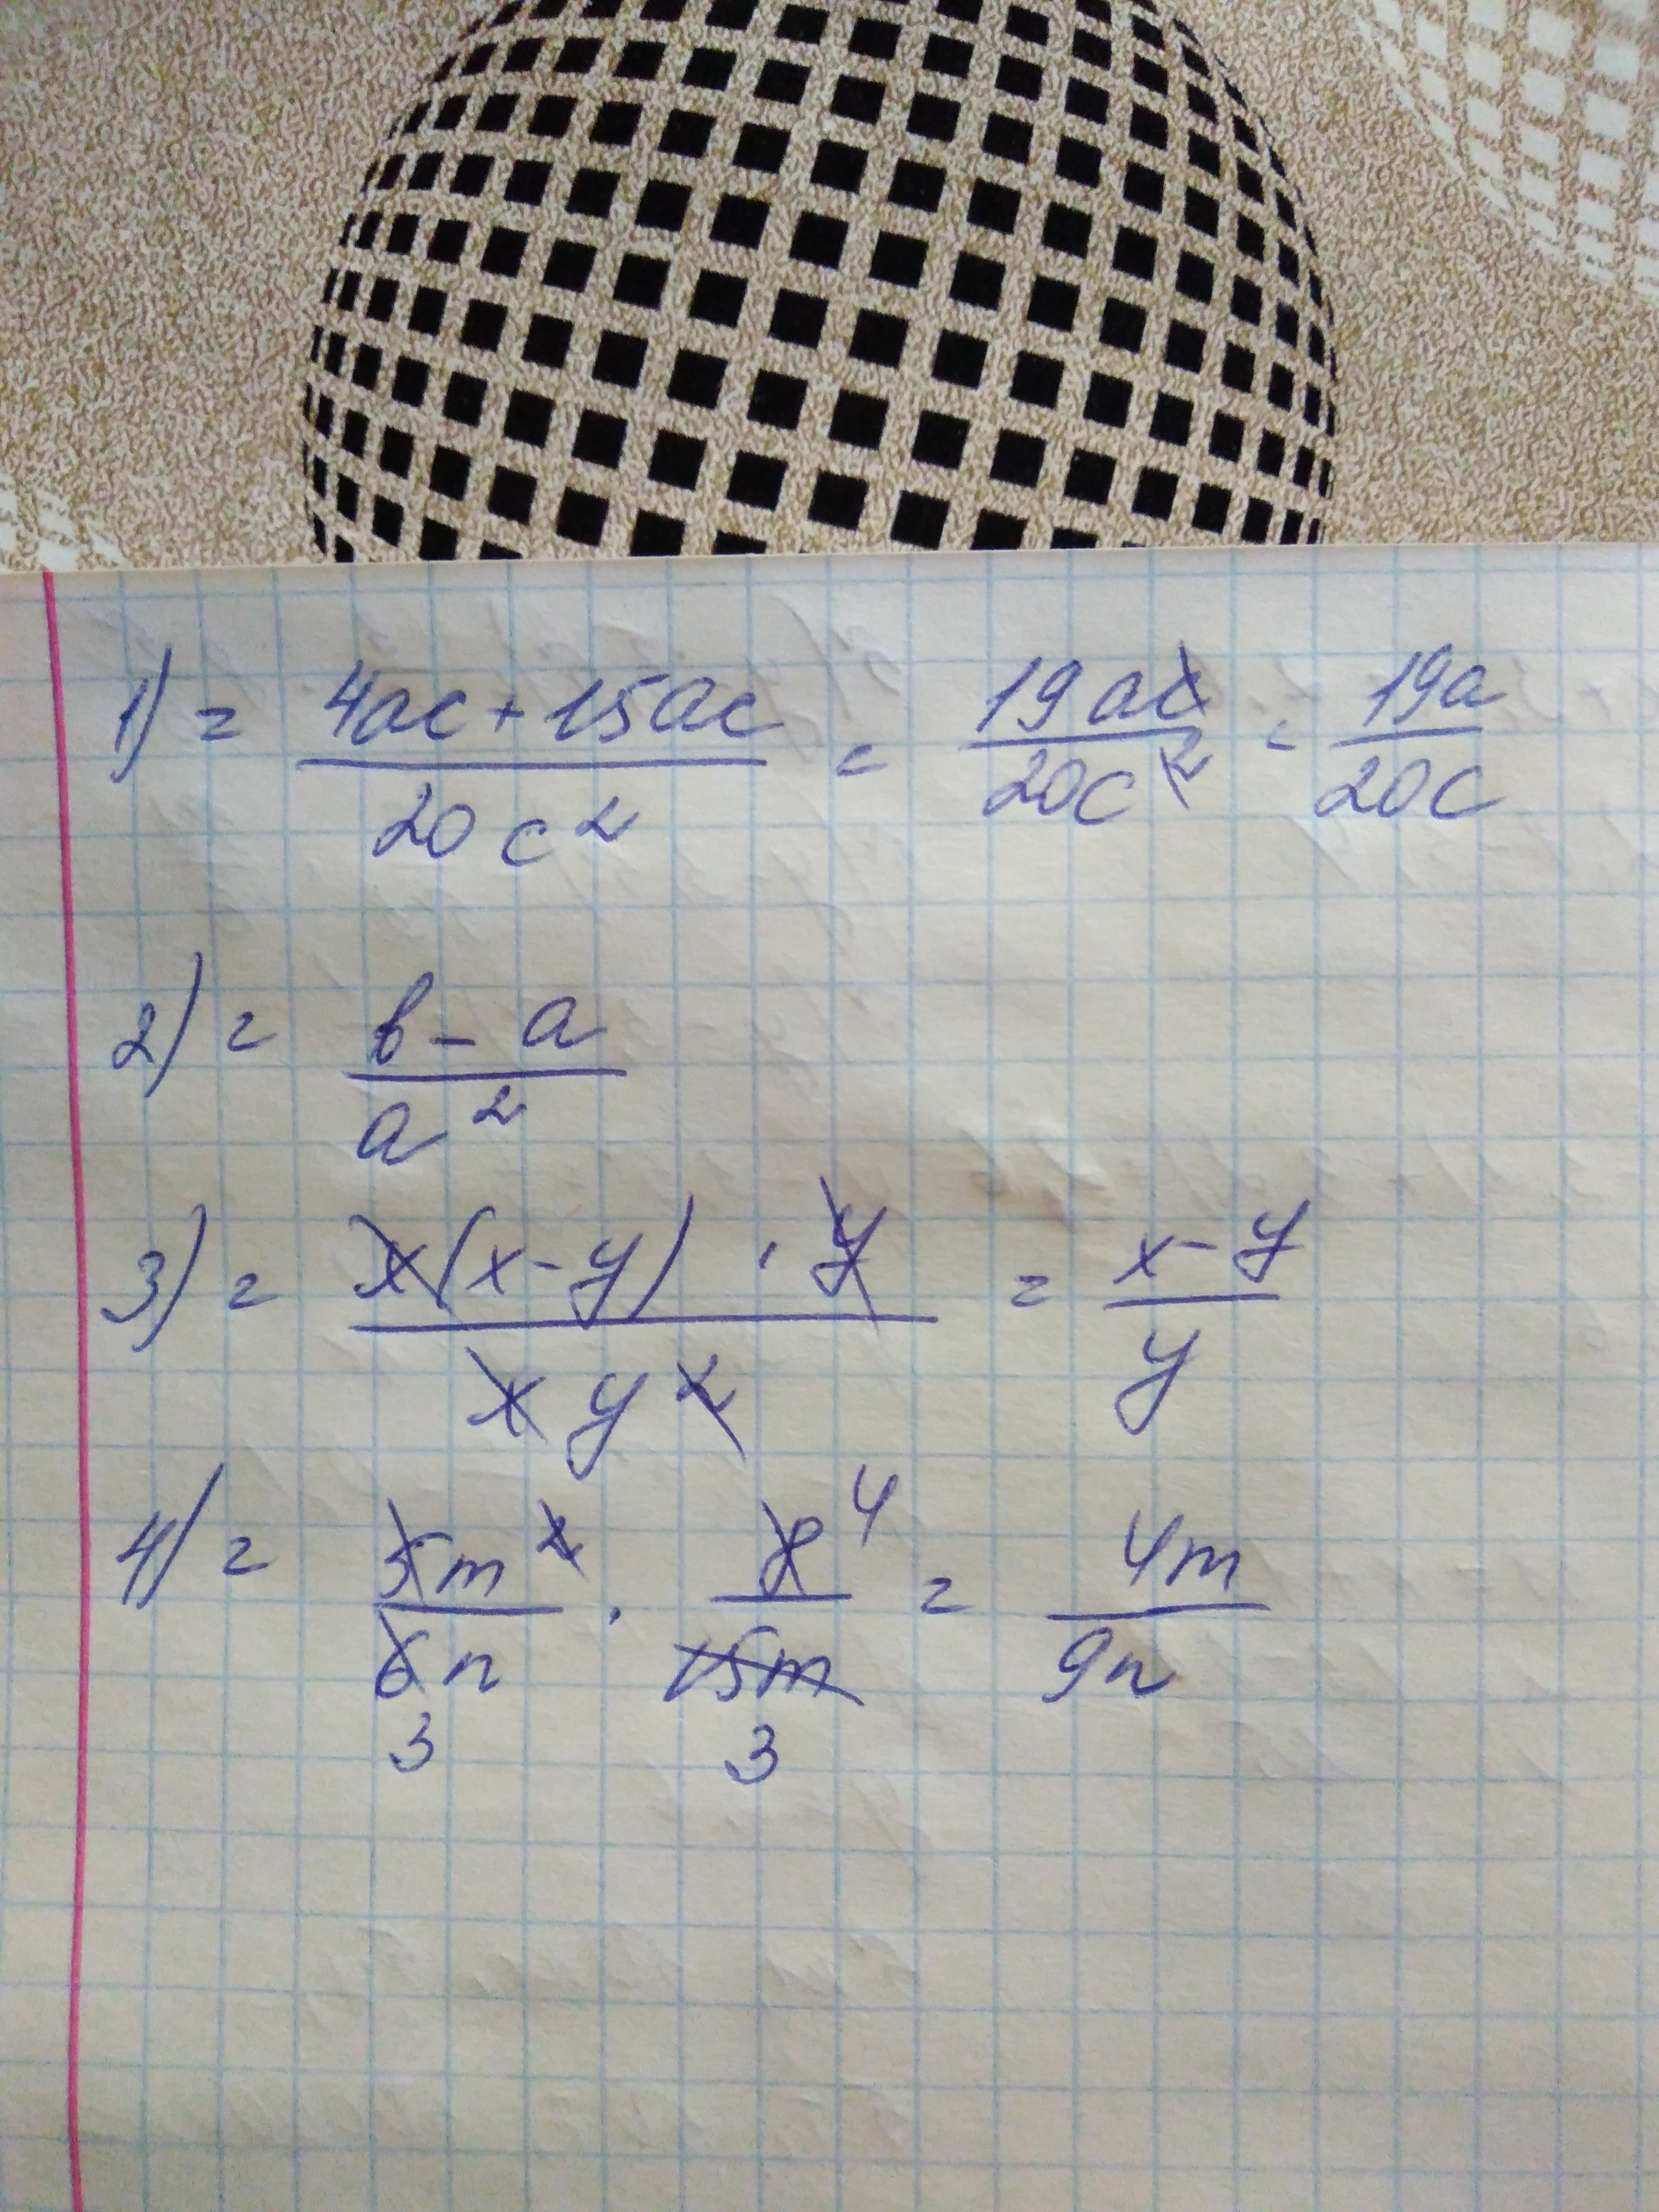 1) = (4ac + 15ac)/(20c²) = (19ac)/(20c²) = (19a)/(20c)
2) = (в - a)/(a²)
3) = (x(x - y) · y)/(xy²) = (x - y)/y
4) = (5m²)/(6n) · 8/(15m) = (4m)/(9n)
4
3 3